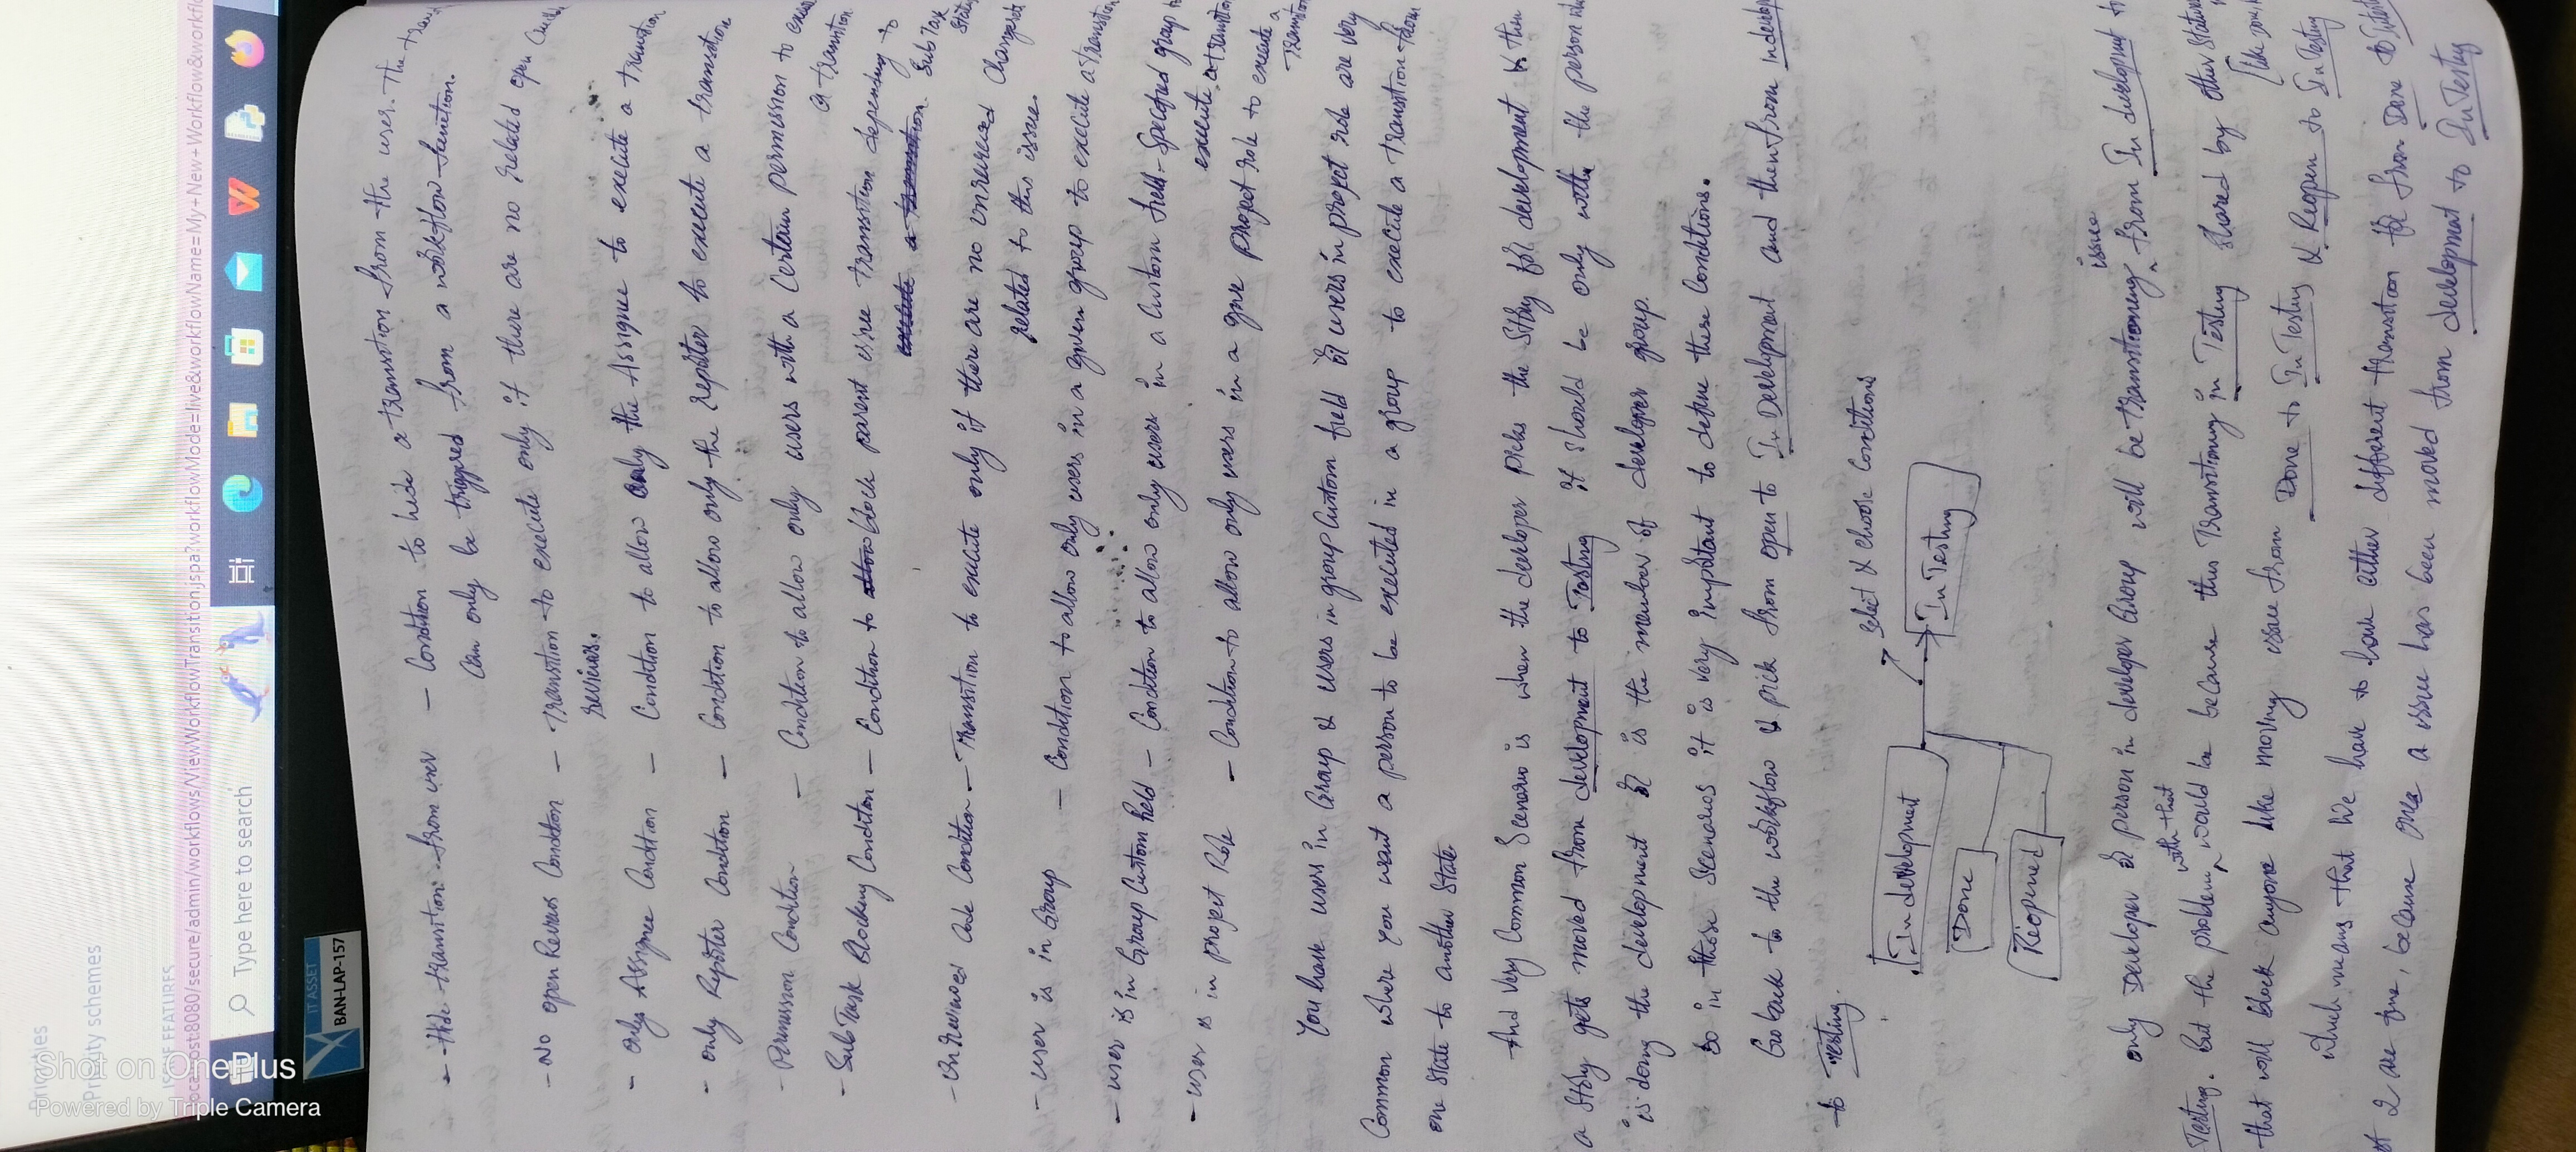 Priorities
Priority schemes
ISSUE FEATURES
localhost:8080/secure/admin/workflows/ViewWorkflowTransition.jspa?workflowMode=live&workflowName=My+New+Workflow&workfl
Type here to search
Shot on OnePlus
Powered by Triple Camera
IT ASSET
BAN-LAP-157
- Hide transition from user - Condition to hide a transition from the user. The
can only be triggered from a workflow function.
- No open Reviews Condition - Transition to execute only if there are no related open
reviews.
- only Assignee Condition - Condition to allow only the Assignee to execute a transition
- only Reporter Condition - Condition to allow only the reporter to execute a transition
- Permission Condition - Condition to allow only users with a Certain permission to
a transition
- SubTask Blocking Condition - Condition to allow block parent issue transition depending to
execute a transition. SubTask
status
- Unreviewed Code Condition - Transition to execute only if there are no unreviewed Changesets
related to this issue.
- user is in Group - Condition to allow only users in a given group to execute a transition
- user is in Group Custom field - Condition to allow only users in a Custom field-Specified group to
execute a transition
- user is in project Role - Condition to allow only users in a give project role to execute a
Transition
You have users in Group & users in group Custom field or users in project role are very
Common where you want a person to be executed in a group to execute a transition from
one state to another state.
And very Common Scenario is when the developer picks the Story for development & then
a story gets moved from development to Testing it should be only with the person
is doing the development or is the member of developer group.
So in those Scenarios it is very important to define these Conditions.
Go back to the workflow & pick from open to In Development and then from
to Testing.
select & choose Conditions
In development
In Testing
Done
Reopened
issue
only Developer or person in developer Group will be transitioning from In development to
with that
Testing. But the problem would be because this Transitioning in Testing shared by other Statuses
[like Done,
that will block anyone like moving issue from Done to In Testing & Reopen to In Testing
which means that We have to have either different transition for from Done to
2 are fine, because once a issue has been moved from development to In Testing